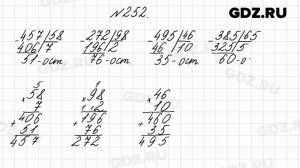 GDZ.RU
N252.
-457|58 -272|98 -495|46 -385|65
406|7 196|2 46|10 325|5
51-ост. 76-ост. 35-ост. 60-о
5 1
×58 ×98 ×46
7 2 10
+406 +196 +460
51 76 35
457 272 495
GDZ.RU